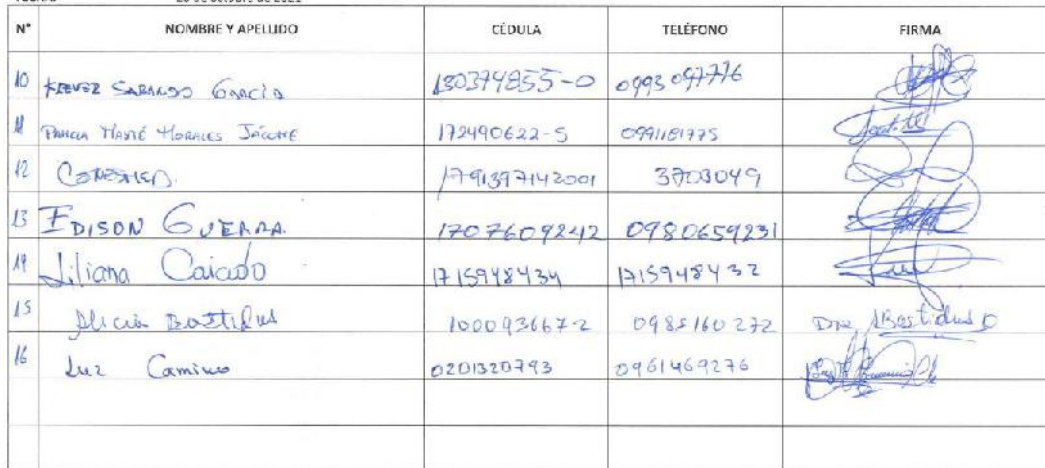 N° NOMBRE Y APELLIDO CÉDULA TELÉFONO FIRMA
10 SABANDO GARCÍA 130374855-0 0993097776
11 MORALES JÁCOME 172490622-5 0991181775
12 1791397142001 3703049
13 EDISON GUERRA 1707609242 0980659231
14 Liliana Caicedo 1715948434 1715948432
15 Alicia Bastidas 100093667-2 0985160272 Dra ABastidas
16 Luz Camino 0201320793 0961469276